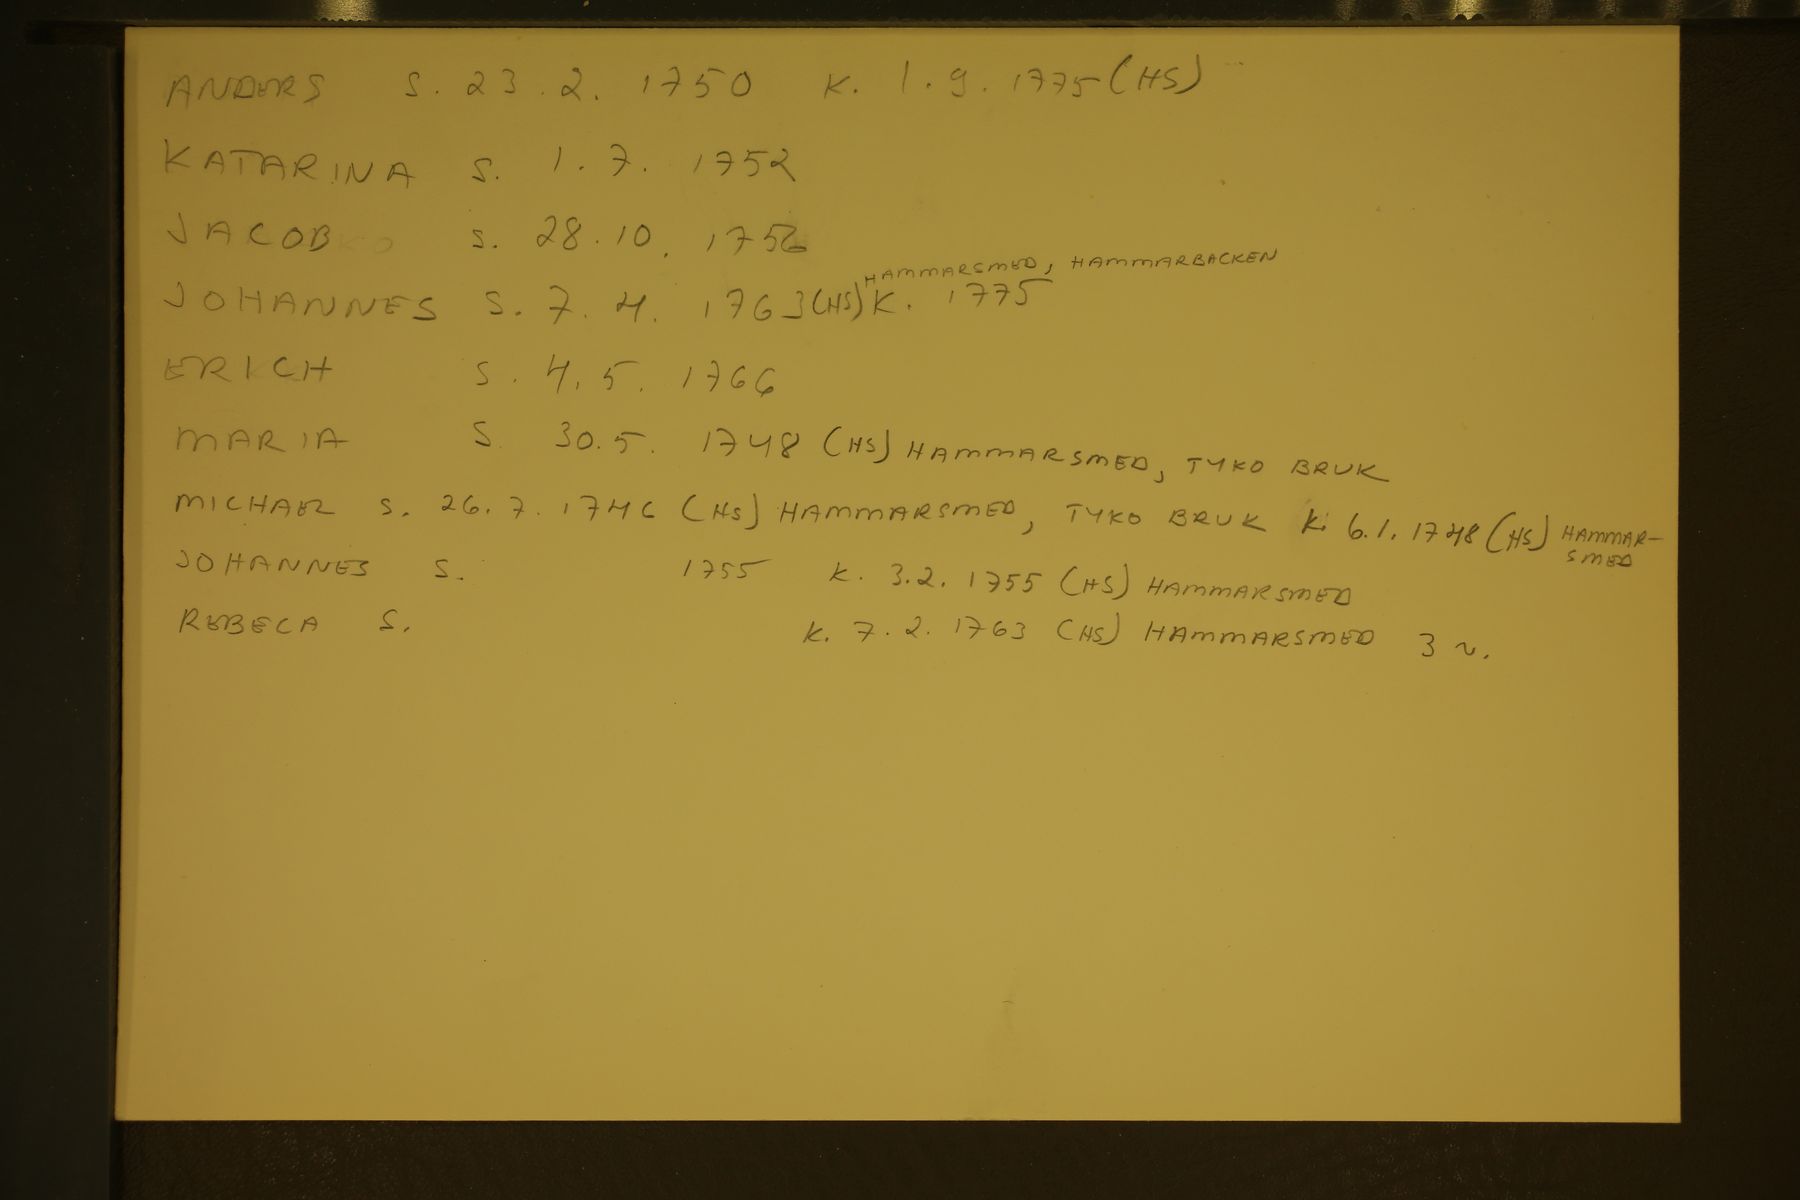 ANDERS S. 23.2. 1750 K. 1.9. 1775 (HS)
KATARINA S. 1.7. 1752
JACOB S. 28.10. 1756
HAMMARSMED, HAMMARBACKEN
JOHANNES S. 7.4. 1763 (HS) K. 1775
ERICH S. 4.5. 1766
MARIA S. 30.5. 1748 (HS) HAMMARSMED, TYKO BRUK
MICHAEL S. 26.7. 1746 (HS) HAMMARSMED, TYKO BRUK K. 6.1. 1748 (HS) HAMMAR-
SMED
JOHANNES S. 1755 K. 3.2. 1755 (HS) HAMMARSMED
REBECA S. K. 7.2. 1763 (HS) HAMMARSMED 3 v.